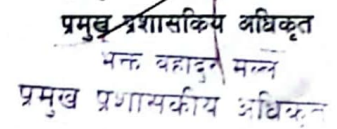 प्रमुख प्रशासकिय अधिकृत
भक्त बहादुर मल्ल
प्रमुख प्रशासकीय अधिकृत